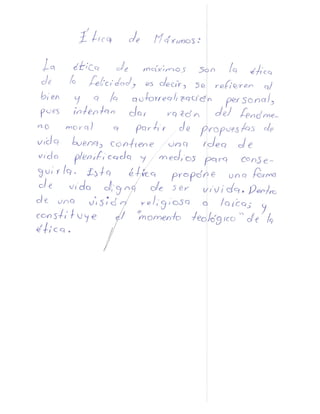 Ética de Máximos:
La ética de máximos son la ética
de la felicidad, es decir, se refieren al
bien y a la autorrealización personal,
pues intentan dar razón del fenóme-
no moral a partir de propuestas de
vida buena, contiene una idea de
vida plenificada y medios para conse-
guirla. Esta ética propone una forma
de vida digna de ser vivida. Dentro
de una visión religiosa o laica; y
constituye el "momento teológico" de la
ética.